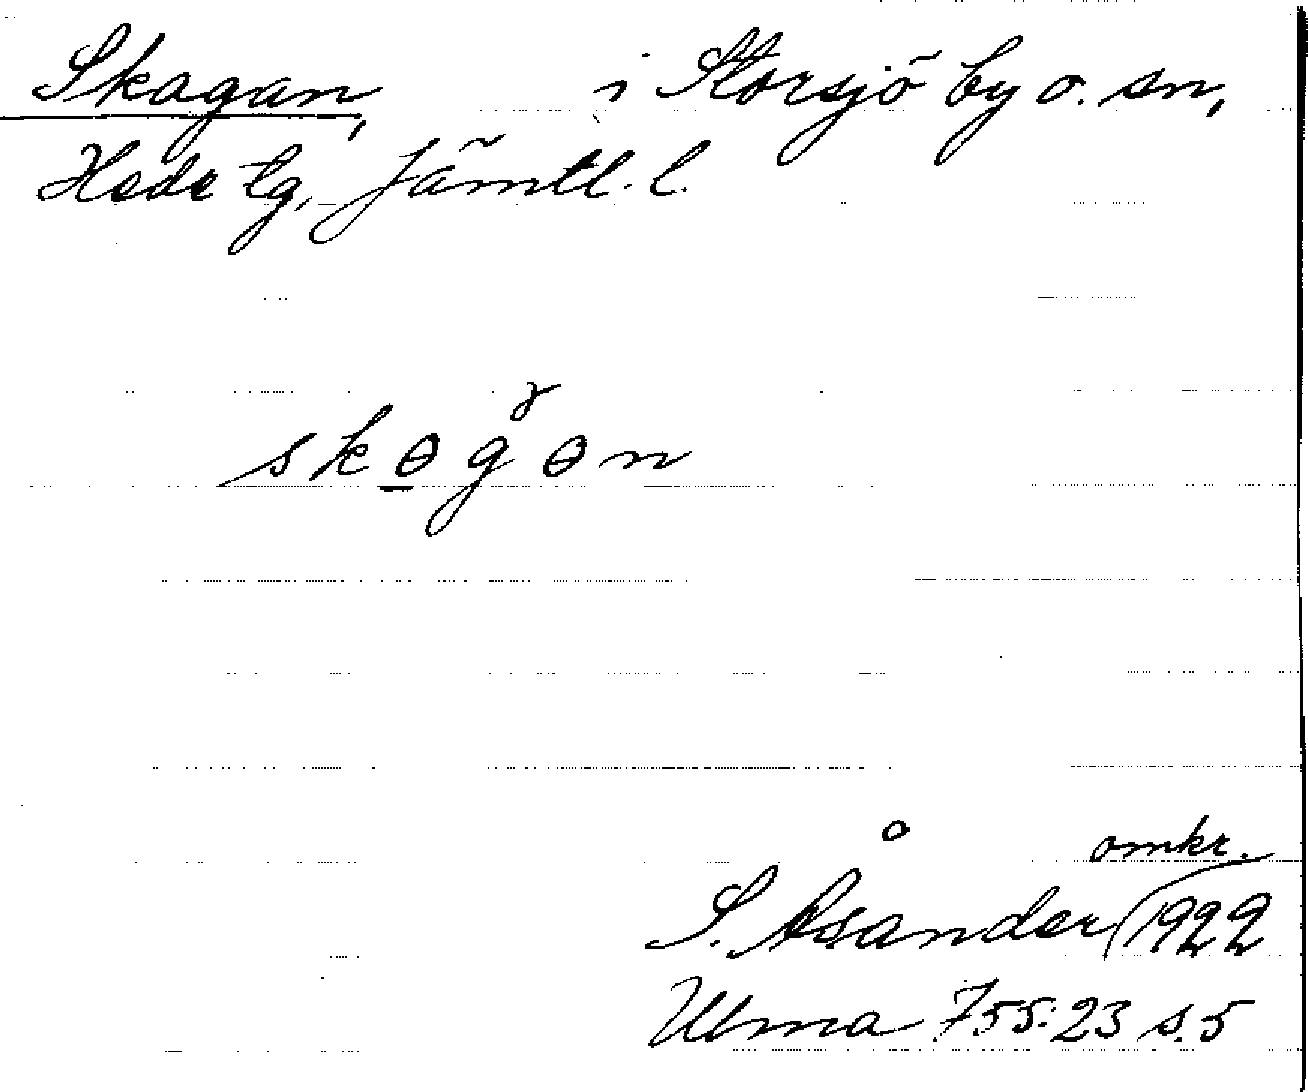 Skagan, i Storsjö by o. sn,
Hede tg, Jämtl. l.
skɵgɵn
omkr.
S. Åsander 1922
Ulma 755:23 s.5